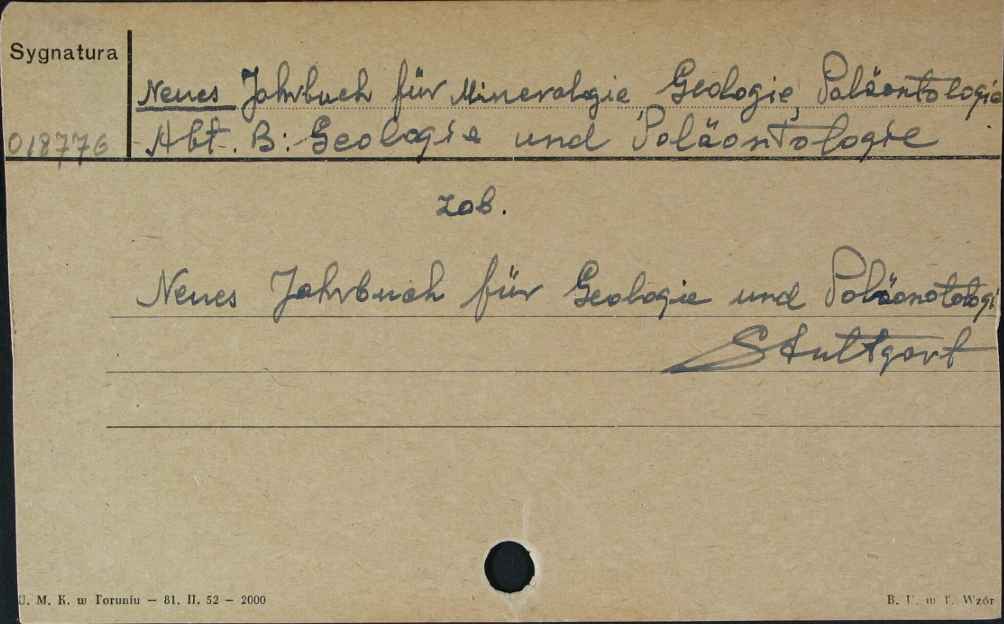 Sygnatura
Neues Jahrbuch für Mineralogie Geologie, Paläontologie
018776 Abt. B: Geologie und Paläontologie
zob.
Neues Jahrbuch für Geologie und Paläonotologi
Stuttgart
U. M. K. w Toruniu — 81. II. 52 — 2000
B. U. w T. Wzór